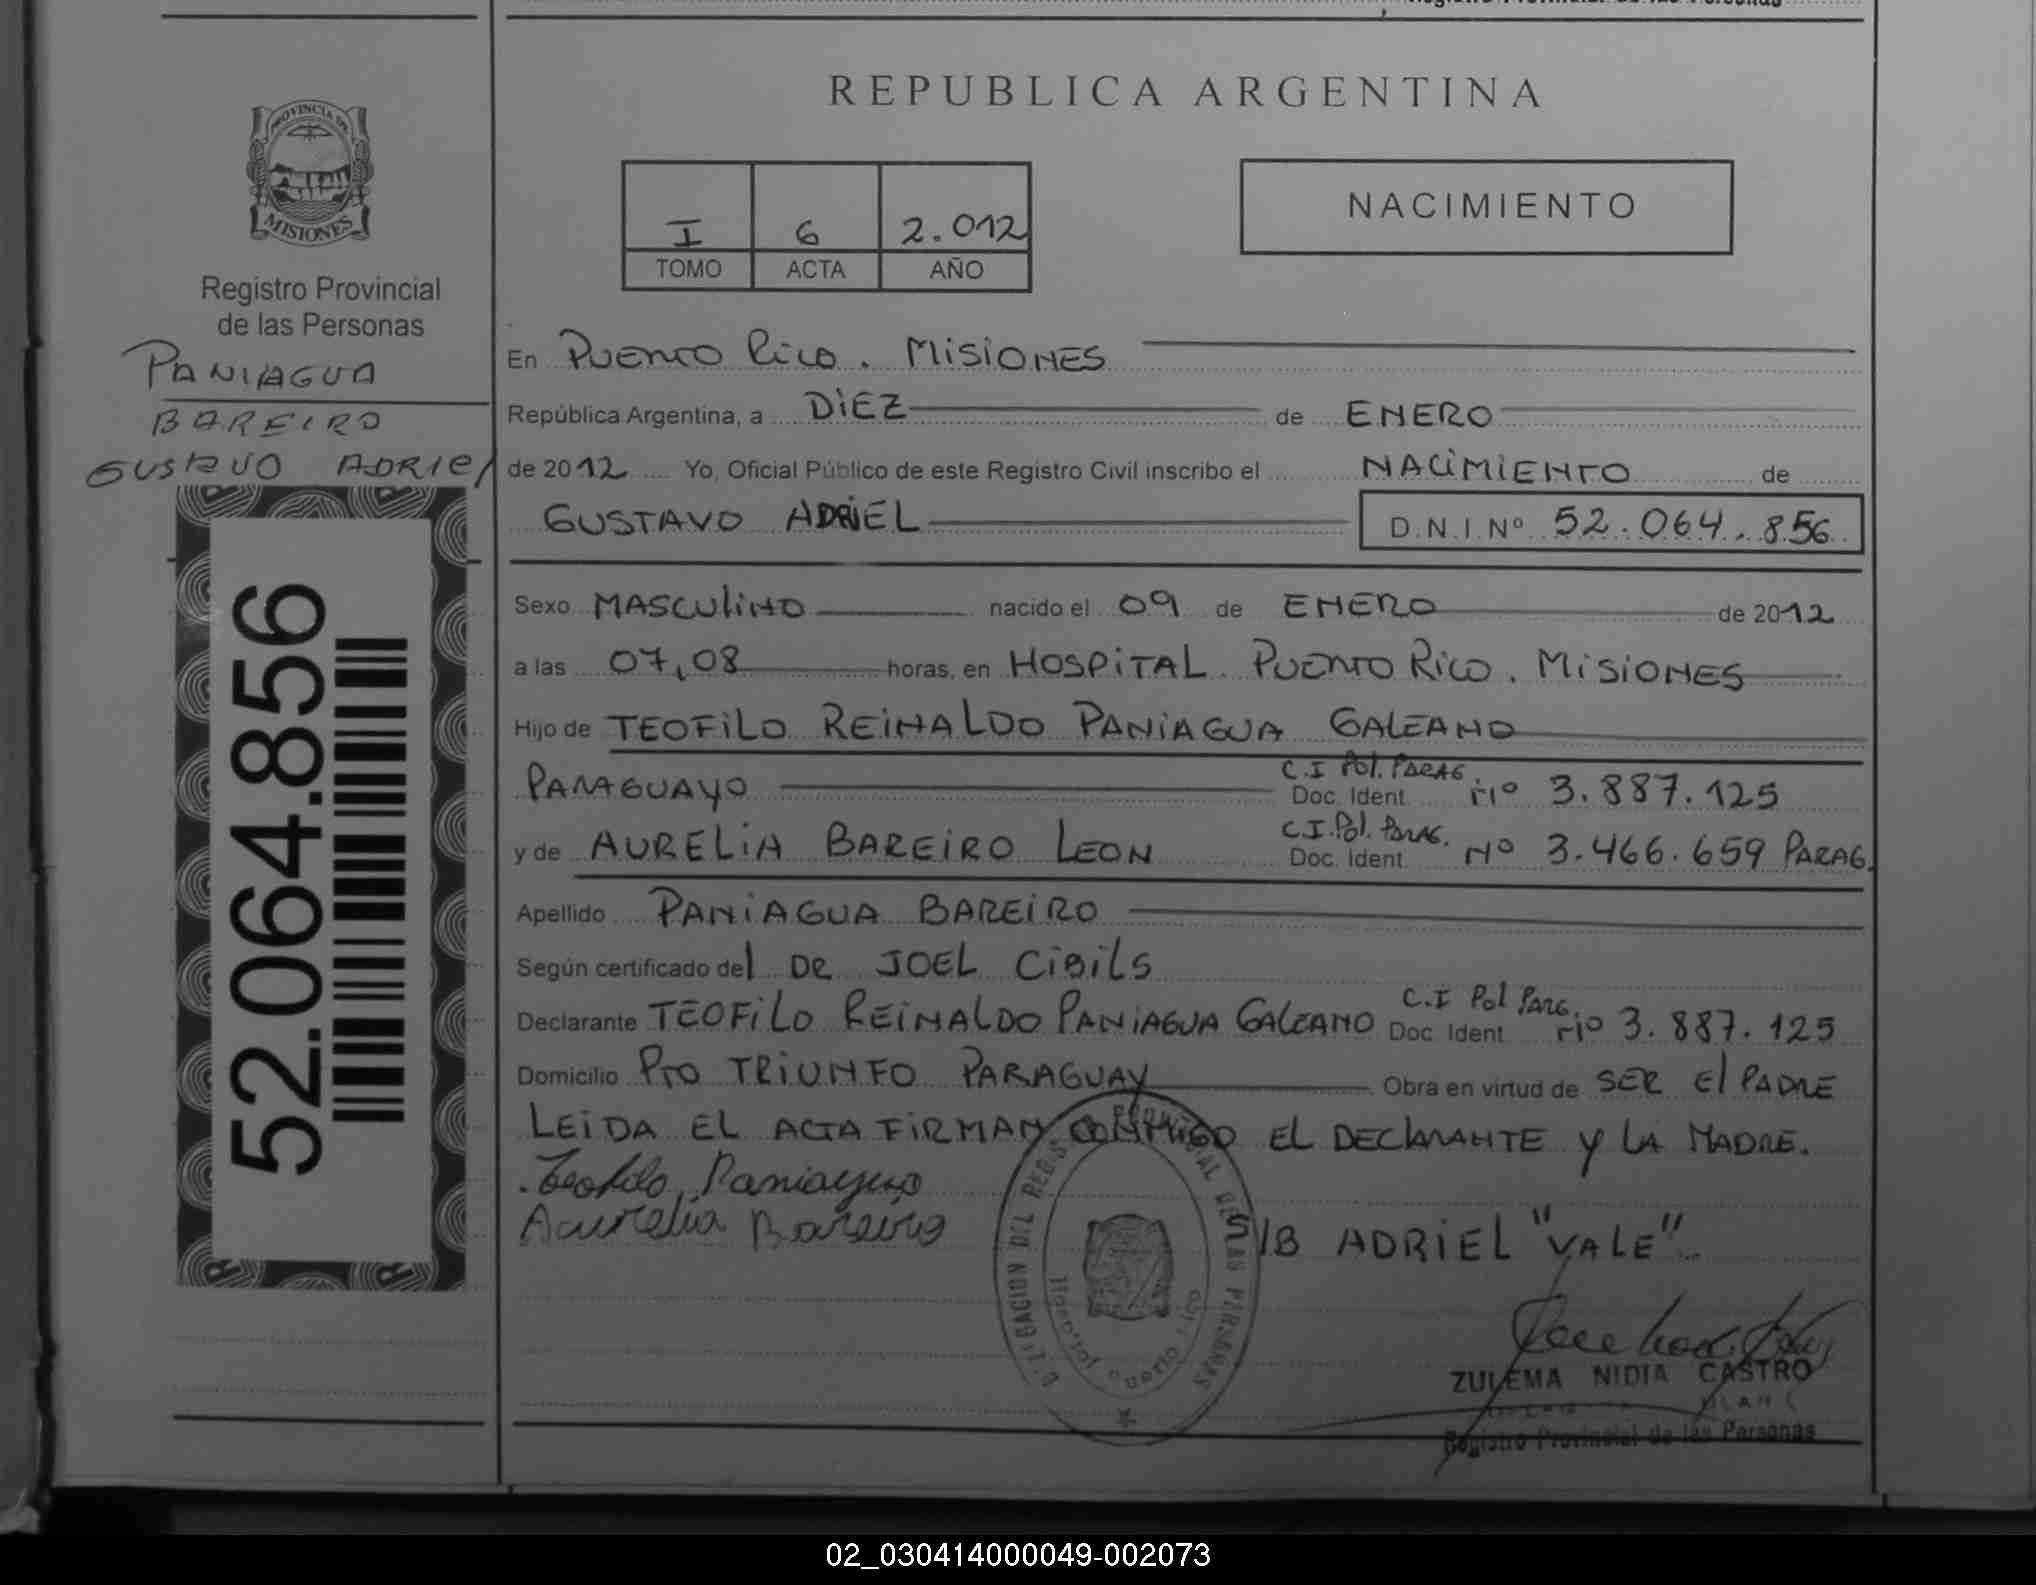 Registro Provincial de las Personas
REPUBLICA ARGENTINA
PROVINCIA DE
MISIONES
Registro Provincial
de las Personas
PANIAGUA
BAREIRO
GUSTAVO ADRIEL
52.064.856
I 6 2.012
TOMO ACTA AÑO
NACIMIENTO
En PUERTO RICO. MISIONES
República Argentina, a DIEZ de ENERO
de 2012 Yo, Oficial Público de este Registro Civil inscribo el NACIMIENTO de
GUSTAVO ADRIEL D.N.I. Nº 52.064.856
Sexo MASCULINO nacido el 09 de ENERO de 2012
a las 07,08 horas, en HOSPITAL PUERTO RICO. MISIONES
Hijo de TEOFILO REINALDO PANIAGUA GALEANO
PARAGUAYO C.I Pol. PARAG. Doc. Ident. Nº 3.887.125
y de AURELIA BAREIRO LEON C.I. Pol. PARAG. Doc. Ident. Nº 3.466.659 PARAG.
Apellido PANIAGUA BAREIRO
Según certificado del DR JOEL CIBILS
Declarante TEOFILO REINALDO PANIAGUA GALEANO C.I Pol PARG. Doc. Ident. Nº 3.887.125
Domicilio PTO TRIUNFO PARAGUAY Obra en virtud de SER El PADRE
LEIDA EL ACTA FIRMAN CONMIGO EL DECLARANTE Y LA MADRE.
Teofilo Paniagua
Aurelia Bareiro
S/B ADRIEL "VALE"
DELEGACION DEL REGISTRO PROVINCIAL DE LAS PERSONAS
Hospital Puerto Rico
ZULEMA NIDIA CASTRO
Registro Provincial de las Personas
02_030414000049-002073